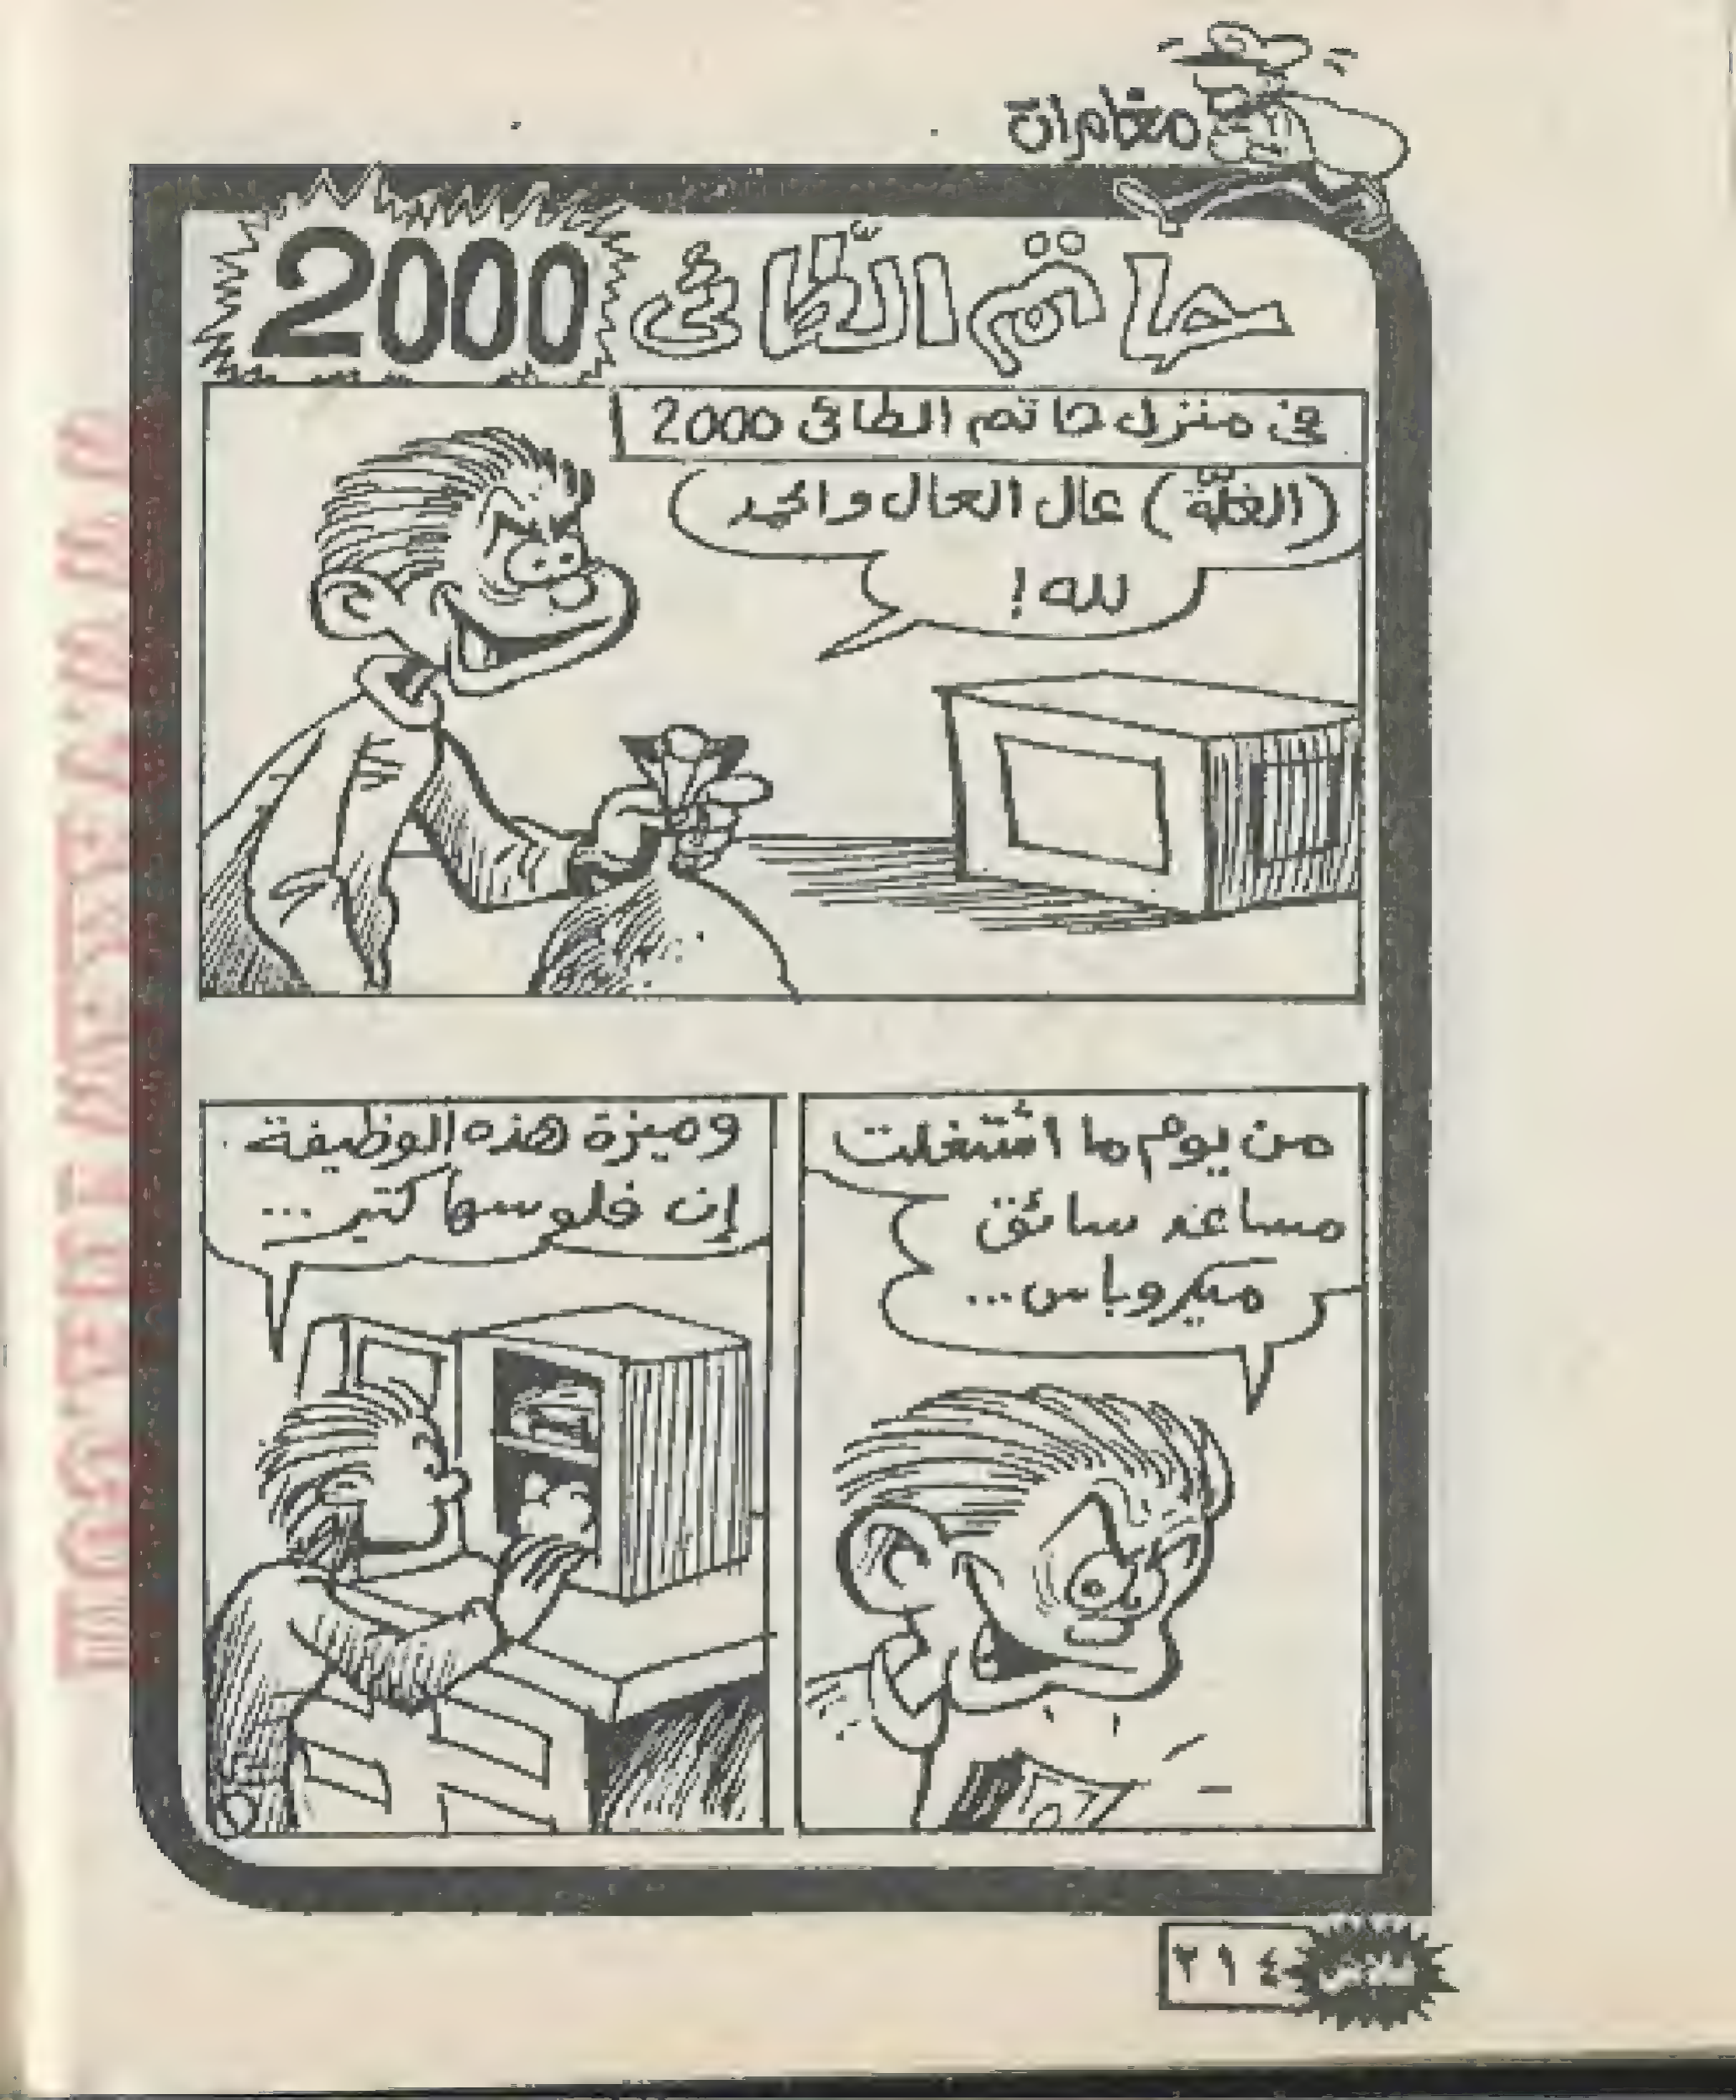 مغامرات
حاتم الطّائى 2000
فى منزل حاتم الطائى 2000
(الغلّة) عال العال والحمد
لله !
من يوم ما اشتغلت
مساعد سائق
ميكروباس...
وميزة هذه الوظيفة
إن فلوسها كتير...
فلاش
٢١٤